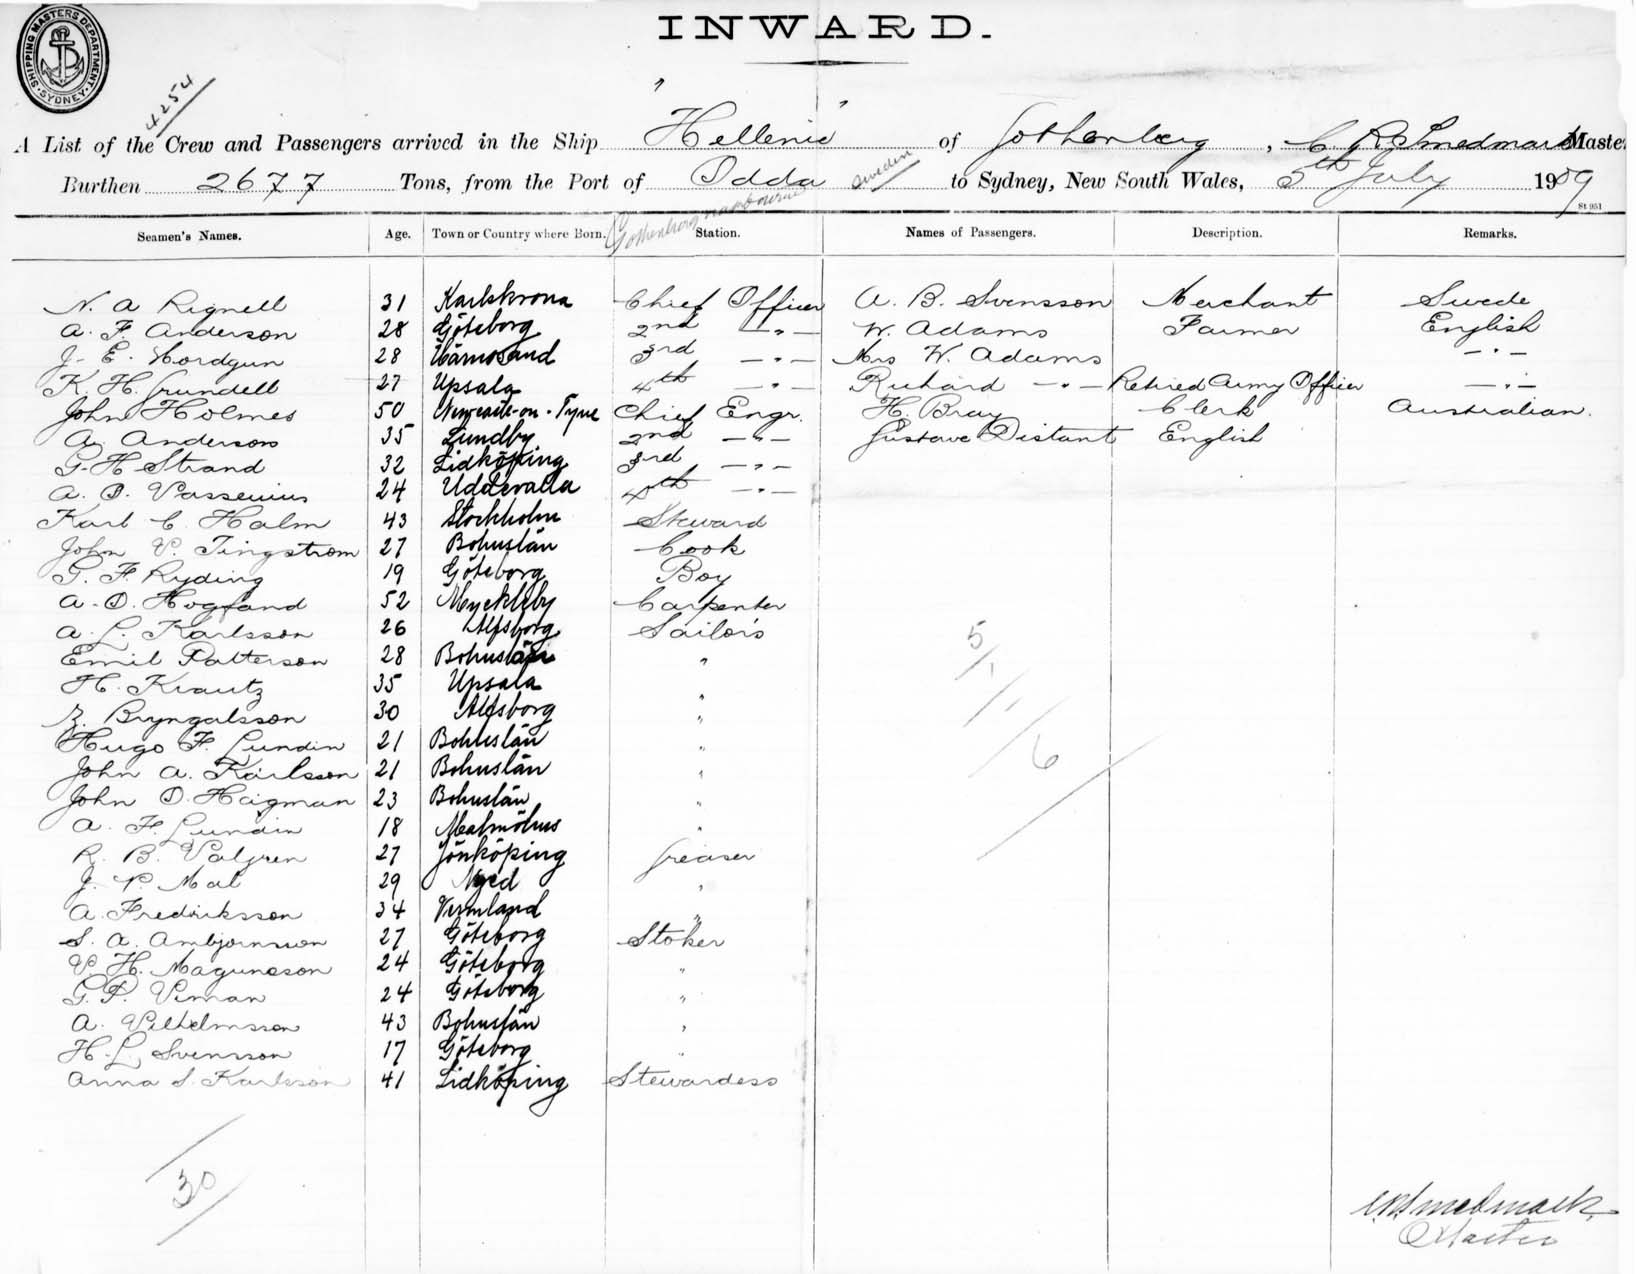 INWARD.
SHIPPING MASTERS DEPARTMENT. SYDNEY.
4254
A List of the Crew and Passengers arrived in the Ship "Hellenic" of Gothenberg, C. R. Smedmark Master
Burthen 2677 Tons, from the Port of Odda Sweden to Sydney, New South Wales, 5th July 1909
St 951
Gothenberg
Seamen's Names. Age. Town or Country where Born. Station. Names of Passengers. Description. Remarks.
N. A Rignell 31 Karlskrona Chief Officer A. B. Svensson Merchant Swede
A. F. Anderson 28 Göteborg 2nd -"- W. Adams Farmer English
J. E. Nordgun 28 Härnösand 3rd -"- Mrs W. Adams -"-
K. H. Grundell 27 Upsala 4th -"- Richard -"- Retired Army Officer -"-
John Holmes 50 Newcastle-on-Tyne Chief Engr. H. Bray Clerk Australian.
A. Anderson 35 Lundby 2nd -"- Gustave Distant English
G. H Strand 32 Lidköping 3rd -"-
A. O. Vassenius 24 Uddevalla 4th -"-
Karl C. Halm 43 Stockholm Steward
John V. Tingstrom 27 Bohuslän Cook
G. F. Ryding 19 Göteborg Boy
A. O. Hogland 52 Myckleby Carpenter
A. L. Karlsson 26 Alfsborg Sailors
Emil Patterson 28 Bohuslän "
H. Krautz 35 Upsala "
Z. Bryngalsson 30 Alfsborg "
Hugo F. Lundin 21 Bohuslän "
John A. Karlsson 21 Bohuslän "
John O. Hagman 23 Bohuslän "
A. F. Lundin 18 Malmöhus "
R. B. Valgren 27 Jönköping Greaser
J. P. Mal 29 Nyed "
A. Fredriksson 34 Vermland "
S. A. Ambjornsson 27 Göteborg Stoker
V. H. Magunsson 24 Göteborg "
G. P. Viman 24 Göteborg "
A. Vilhelmsson 43 Bohuslän "
H. L. Svensson 17 Göteborg "
Anna S. Karlsson 41 Lidköping Stewardess
5/1/6
30
C. R. Smedmark
Master